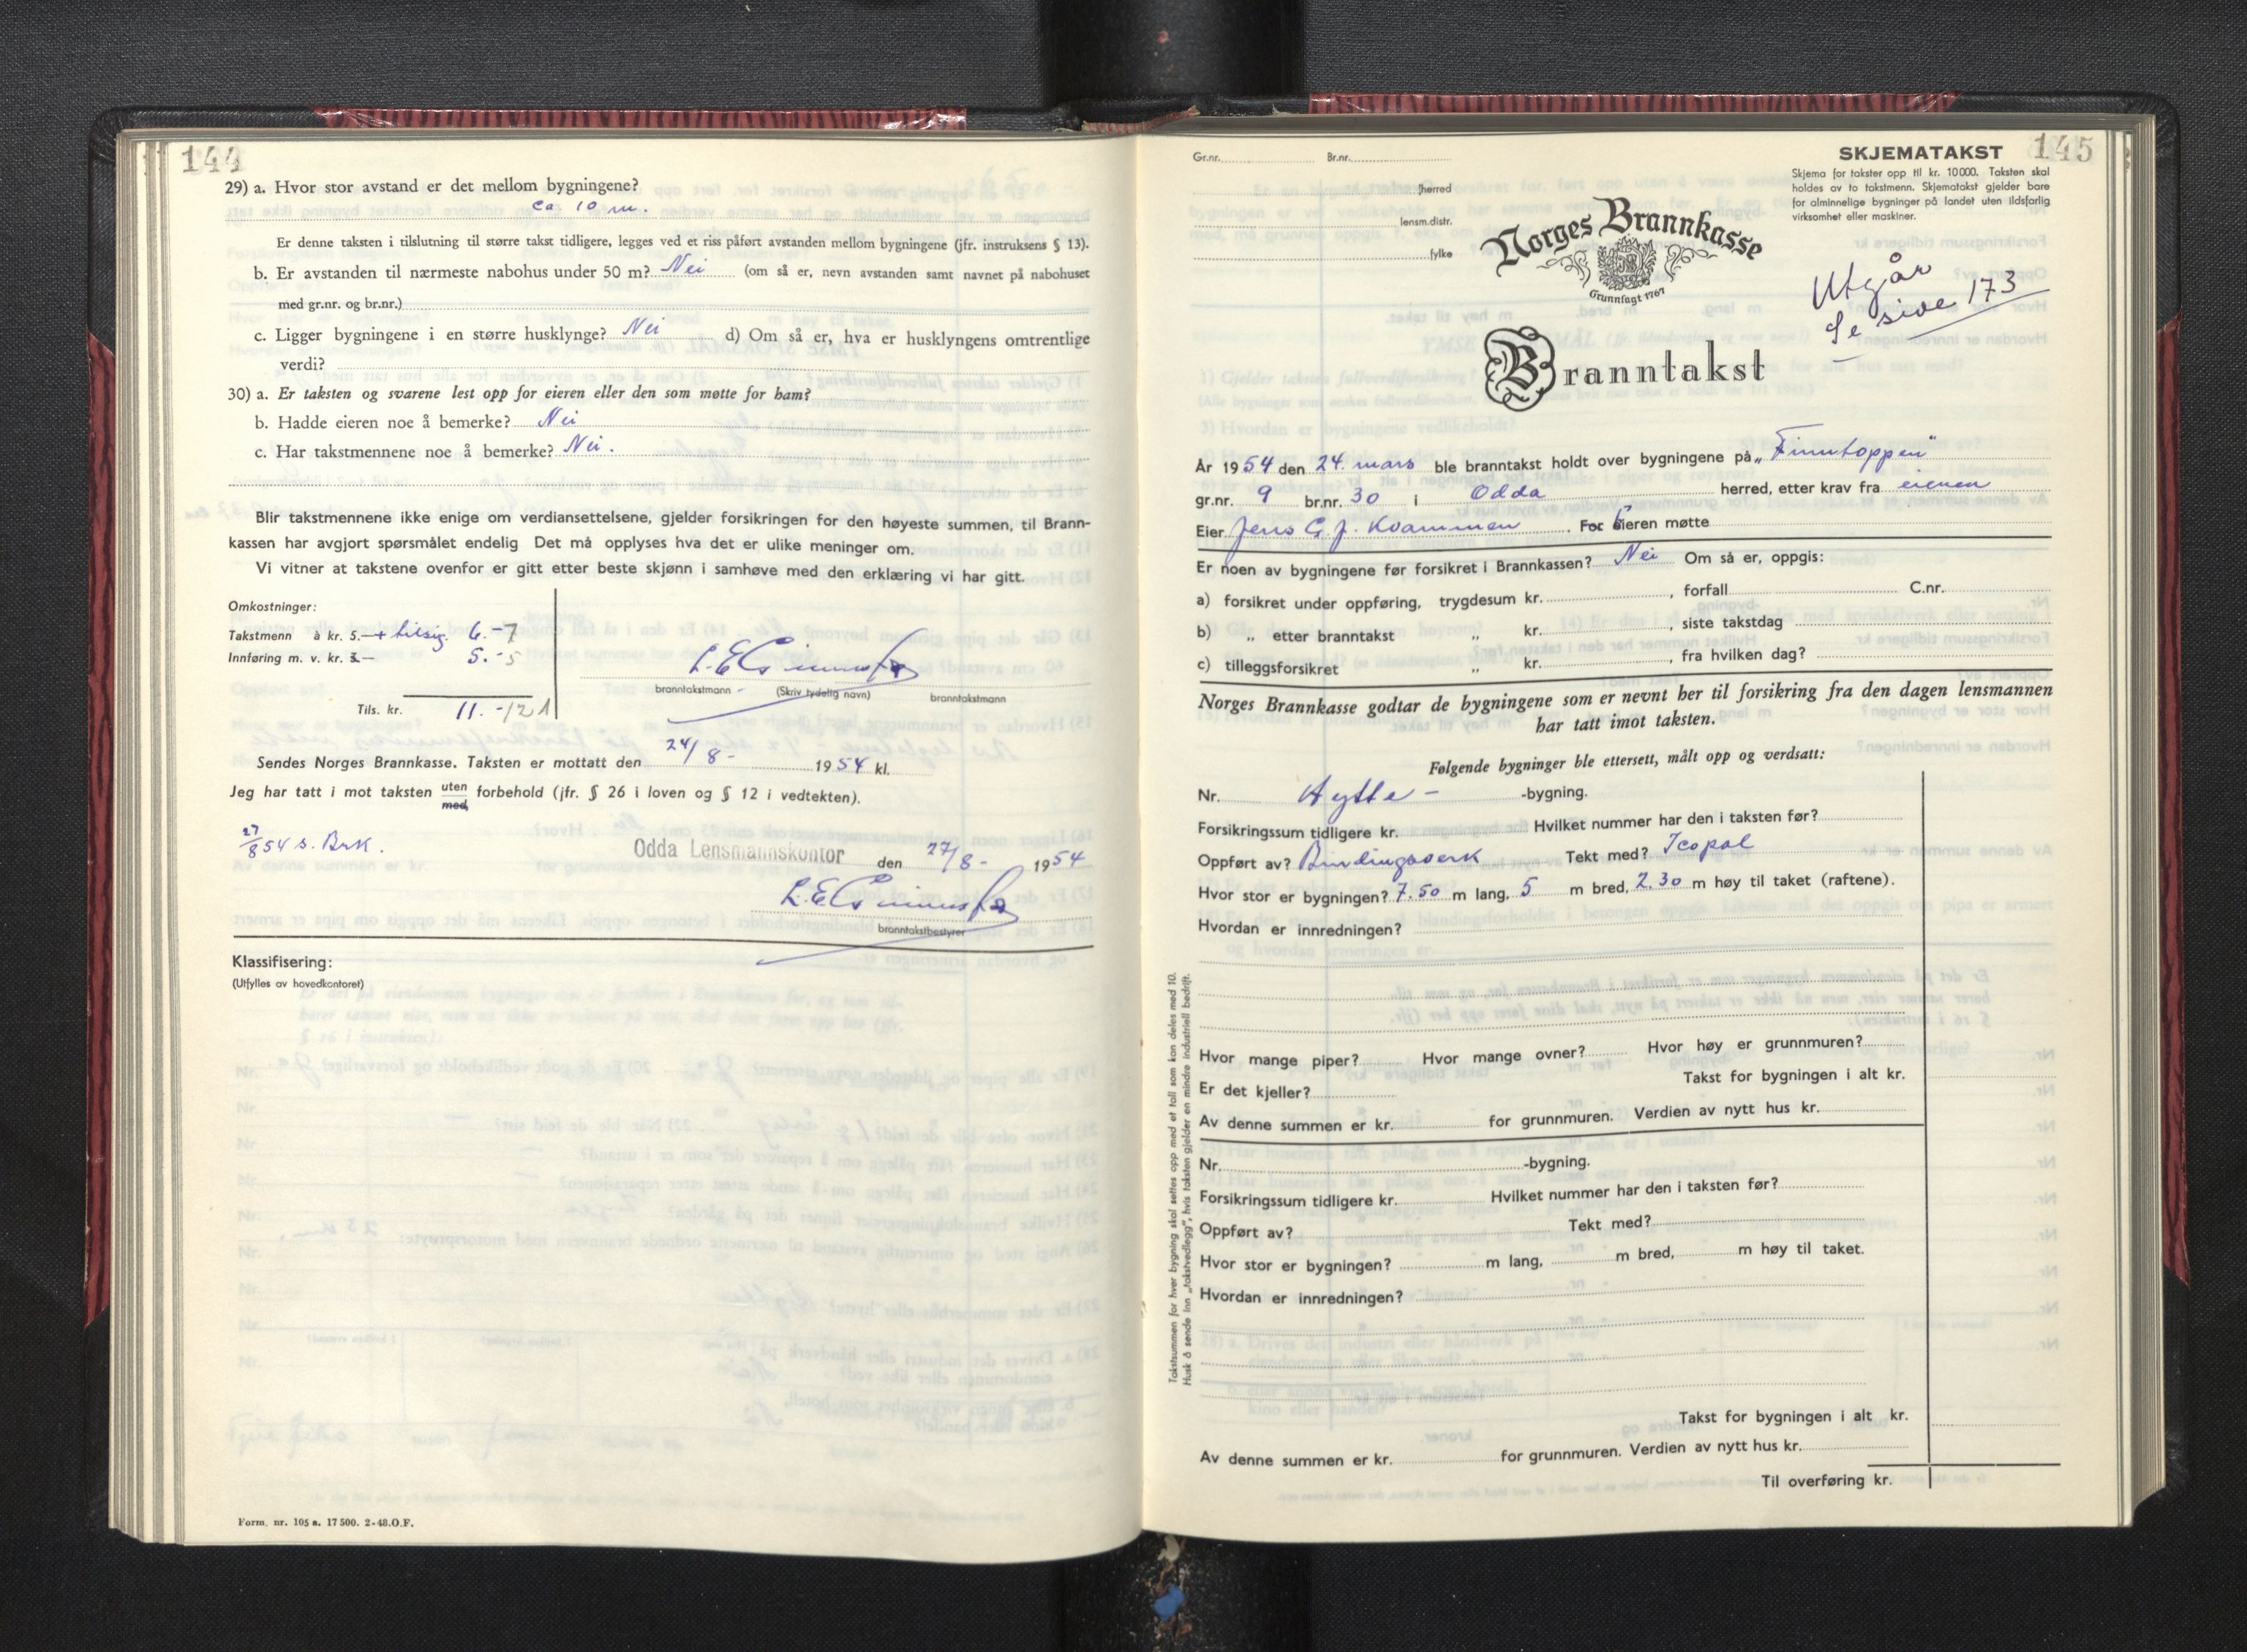 144
29) a. Hvor stor avstand er det mellom bygningene?
ca 10 m.
Er denne taksten i tilslutning til større takst tidligere, legges ved et riss påført avstanden mellom bygningene (jfr. instruksens § 13).
b. Er avstanden til nærmeste nabohus under 50 m? Nei (om så er, nevn avstanden samt navnet på nabohuset
med gr.nr. og br.nr.)
c. Ligger bygningene i en større husklynge? Nei d) Om så er, hva er husklyngens omtrentlige
verdi?
30) a. Er taksten og svarene lest opp for eieren eller den som møtte for ham?
b. Hadde eieren noe å bemerke? Nei
c. Har takstmennene noe å bemerke? Nei.
Blir takstmennene ikke enige om verdiansettelsene, gjelder forsikringen for den høyeste summen, til Brann-
kassen har avgjort spørsmålet endelig Det må opplyses hva det er ulike meninger om.
Vi vitner at takstene ovenfor er gitt etter beste skjønn i samhøve med den erklæring vi har gitt.
Omkostninger:
Takstmenn à kr. 5.— + tilsig. 6.- 7
Innføring m. v. kr. 3.— 5.- 5
branntakstmann (Skriv tydelig navn) branntakstmann
Tils. kr. 11.- 12
Sendes Norges Brannkasse. Taksten er mottatt den 24/8- 1954 kl.
Jeg har tatt i mot taksten uten med forbehold (jfr. § 26 i loven og § 12 i vedtekten).
27/8 54 s. Brk.
Odda Lensmannskontor den 27/8- 1954
branntakstbestyrer
Klassifisering:
(Utfylles av hovedkontoret)
Form. nr. 105 a. 17 500. 2-48.O.F.
145
Gr.nr. Br.nr.
herred
lensm.distr.
fylke
Norges Brannkasse
Grunnlagt 1767
SKJEMATAKST
Skjema for takster opp til kr. 10 000. Taksten skal
holdes av to takstmenn. Skjematakst gjelder bare
for alminnelige bygninger på landet uten ildsfarlig
virksomhet eller maskiner.
Utgår
Se side 173
Branntakst
År 1954 den 24. mars ble branntakst holdt over bygningene på „Finntoppen"
gr.nr. 9 br.nr. 30 i Odda herred, etter krav fra eieren
Eier Jens G. J. Kvammen. For Eieren møtte
Er noen av bygningene før forsikret i Brannkassen? Nei Om så er, oppgis:
a) forsikret under oppføring, trygdesum kr. , forfall C.nr.
b) „ etter branntakst „ kr. , siste takstdag
c) tilleggsforsikret „ kr. , fra hvilken dag?
Norges Brannkasse godtar de bygningene som er nevnt her til forsikring fra den dagen lensmannen
har tatt imot taksten.
Følgende bygninger ble ettersett, målt opp og verdsatt:
Nr. Hytte- -bygning.
Forsikringssum tidligere kr. Hvilket nummer har den i taksten før?
Oppført av? Bindingsverk Tekt med? Icopal
Hvor stor er bygningen? 7.50 m lang, 5 m bred, 2.30 m høy til taket (raftene).
Hvordan er innredningen?
Hvor mange piper? Hvor mange ovner? Hvor høy er grunnmuren?
Er det kjeller? Takst for bygningen i alt kr.
Av denne summen er kr. for grunnmuren. Verdien av nytt hus kr.
Nr. -bygning.
Forsikringssum tidligere kr. Hvilket nummer har den i taksten før?
Oppført av? Tekt med?
Hvor stor er bygningen? m lang, m bred, m høy til taket.
Hvordan er innredningen?
Takst for bygningen i alt kr.
Av denne summen er kr. for grunnmuren. Verdien av nytt hus kr.
Til overføring kr.
Takstsummen for hver bygning skal settes opp med et tall som kan deles med 10.
Husk å sende inn „takstvedlegg", hvis taksten gjelder en mindre industriell bedrift.